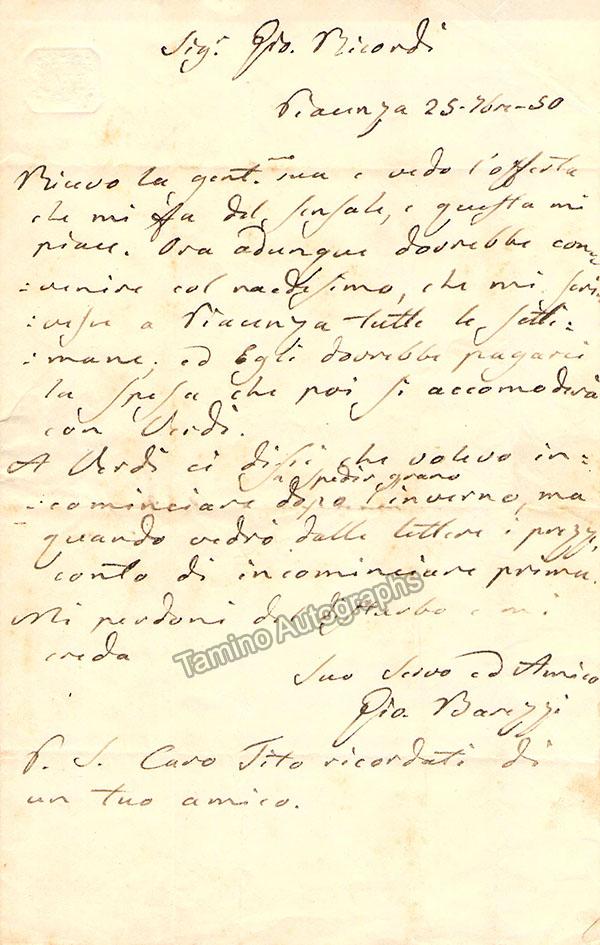 Sigr. Gio. Ricordi
Piacenza 25-7bre-50
Ricevo la gent.ma sua e vedo l'offerta
che mi fa del sensale, e questa mi
piace. Ora adunque dovrebbe con=
=venire col medesimo, che mi scri
=vesse a Piacenza tutte le setti=
=mane, ed Egli dovrebbe pagarci
la spesa che poi si accomoderà
con Verdi.
A Verdi ci dissi che volevo in=
a spedir grano
=cominciare dopo l'inverno, ma
quando vedrò dalle lettere i prezzi,
conto di incominciare prima.
Mi perdoni del disturbo e mi
creda
Suo Servo ed Amico
Gio. Barezzi
P. S. Caro Tito ricordati di
un tuo amico.
Tamino Autographs